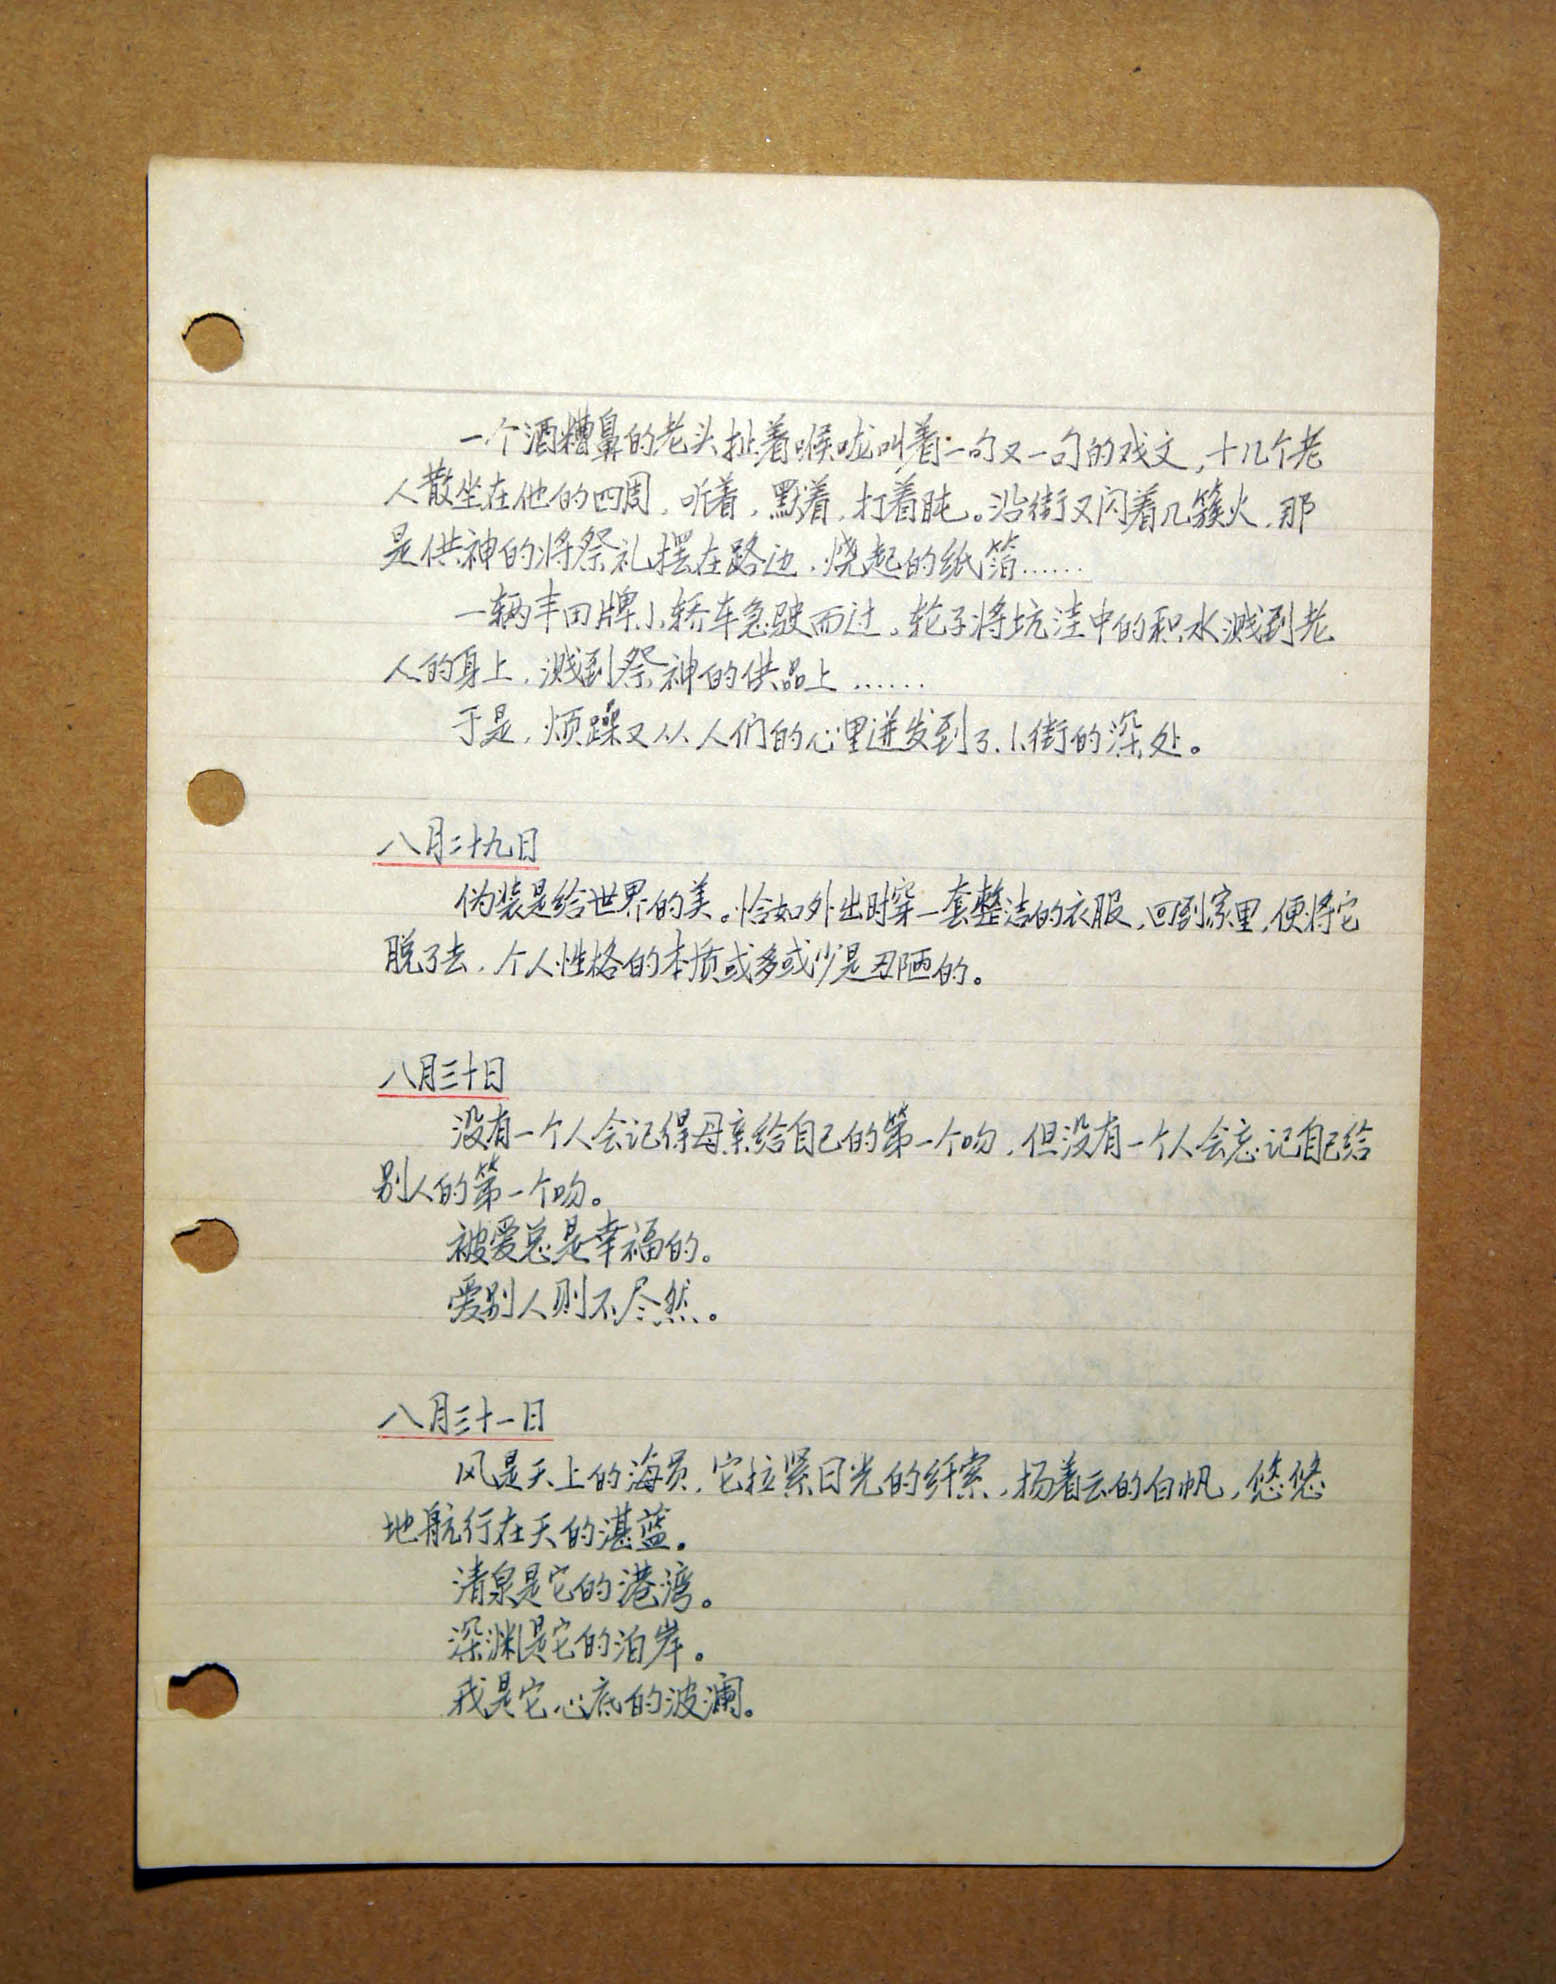 一个酒糟鼻的老头扯着喉咙叫着一句又一句的戏文，十几个老
人散坐在他的四周，听着，默着，打着盹。沿街又闪着几簇火，那
是供神的将祭礼摆在路边，烧起的纸箔……
一辆丰田牌小轿车急驶而过，轮子将坑洼中的积水溅到老
人的身上，溅到祭神的供品上……
于是，烦躁又从人们的心里迸发到了小街的深处。
八月二十九日
伪装是给世界的美。恰如外出时穿一套整洁的衣服，回到家里，便将它
脱了去，个人性格的本质或多或少是丑陋的。
八月三十日
没有一个人会记得母亲给自己的第一个吻，但没有一个人会忘记自己给
别人的第一个吻。
被爱总是幸福的。
爱别人则不尽然。
八月三十一日
风是天上的海员，它拉紧日光的纤索，扬着云的白帆，悠悠
地航行在天的湛蓝。
清泉是它的港湾。
深渊是它的泊岸。
我是它心底的波澜。